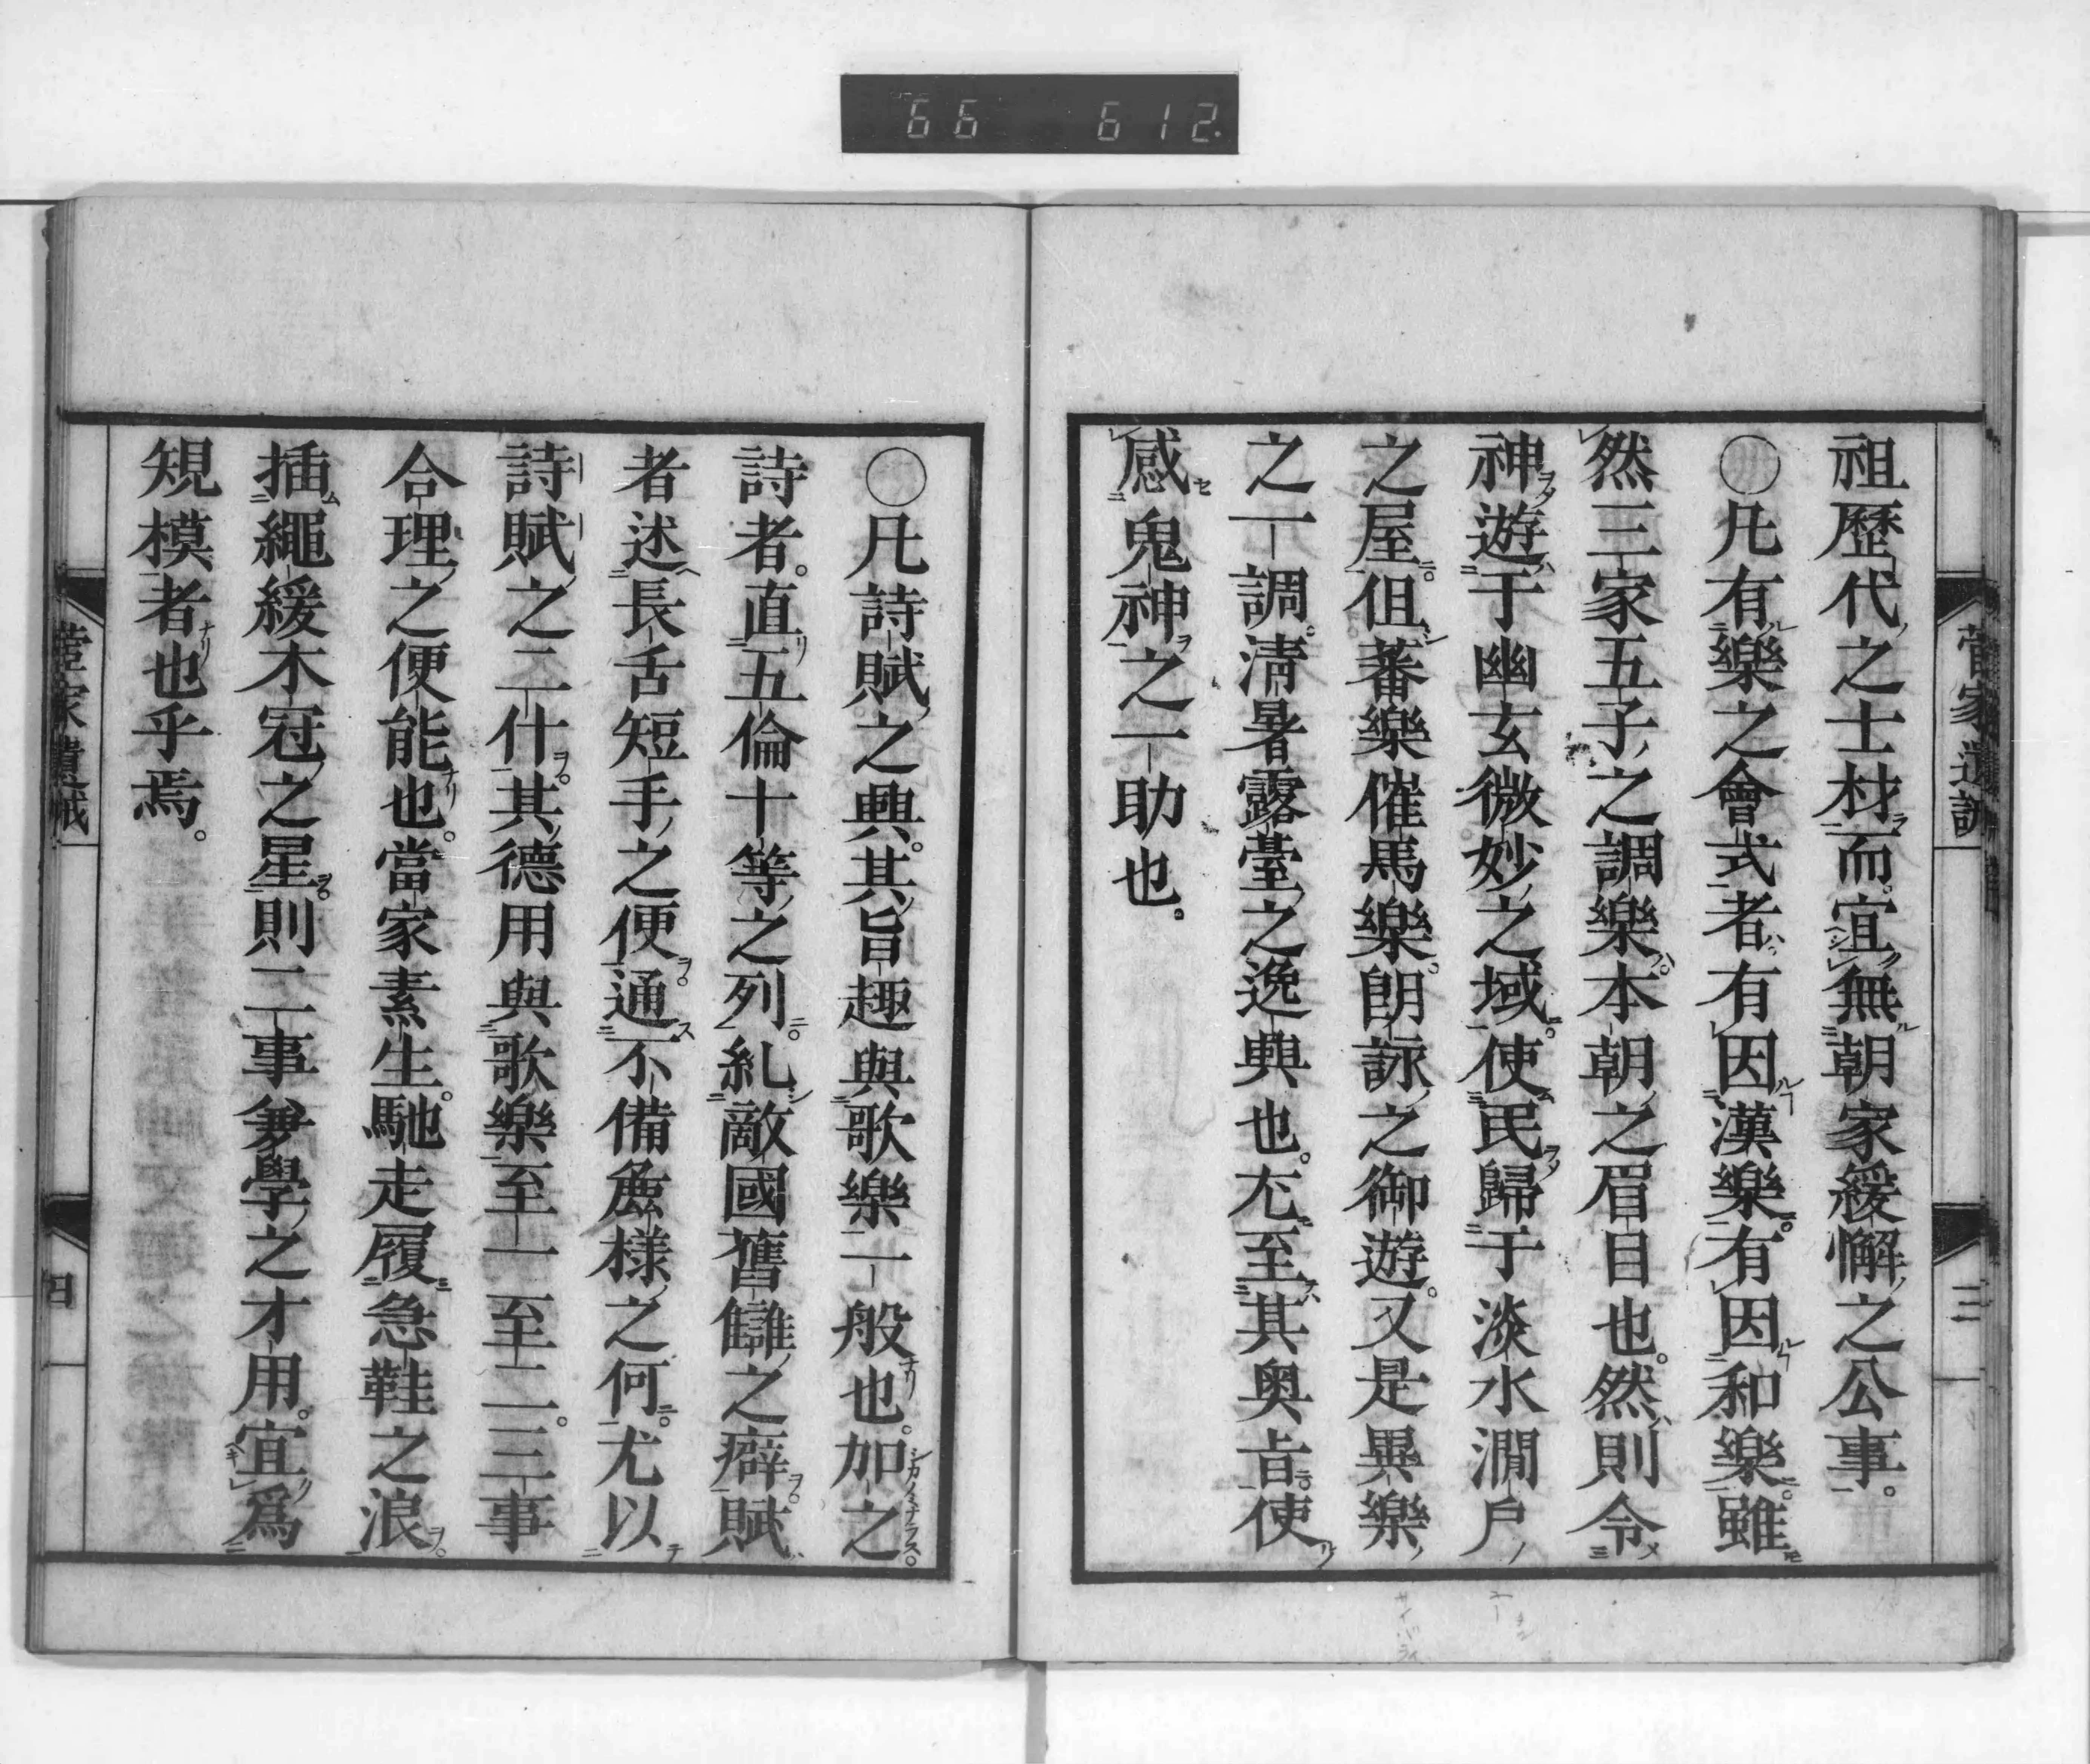 66 612.
菅家遺誡
三
祖歷代之士材而宜無朝家緩懈之公事。
○凡有樂之會式者有因漢樂。有因和樂。雖
然三家五子之調樂。本朝之眉目也。然則令
神遊于幽玄微妙之域。使民歸于淡水澗戶
之屋。但蕃樂催馬樂。朗詠之御遊。又是異樂
之一調。淸暑露臺之逸興也。尤至其奧旨。使
感鬼神之一助也。
○凡詩賦之興。其旨趣與歌樂一般也。加之
詩者。直五倫十等之列。糺敵國舊讎之癖。賦
者述長舌短手之便。通不備麁樣之何。尤以
詩賦之二什。其德用與歌樂至一至二。三事
合理之便能也。當家素生。馳走履急鞋之浪。
插繩緩木冠之星。則二事兼學之才用。宜爲
規模者也乎焉。
菅家遺誡
四